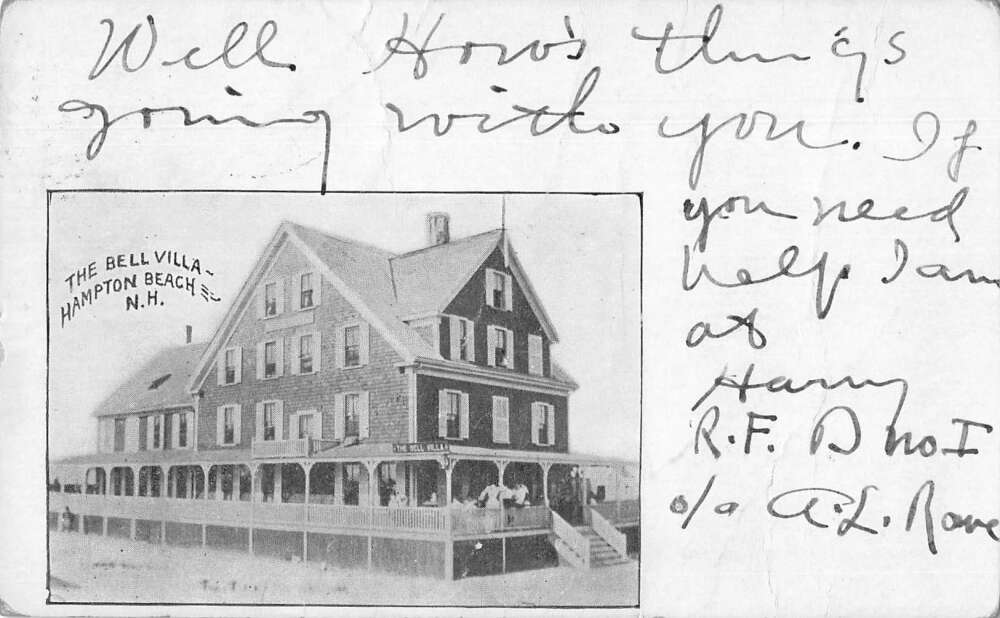 Well. How's things
going with you. If
you need
help I am
at
Harry
R.F. D no I
c/o A.L. Rowe
THE BELL VILLA
HAMPTON BEACH
N.H.
THE BELL VILLA